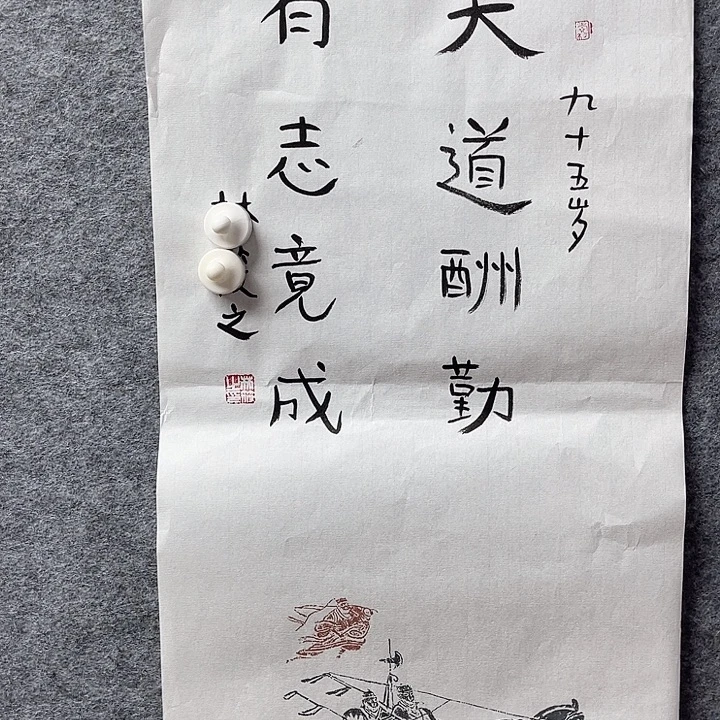 九十五岁
天道酬勤
有志竟成
之